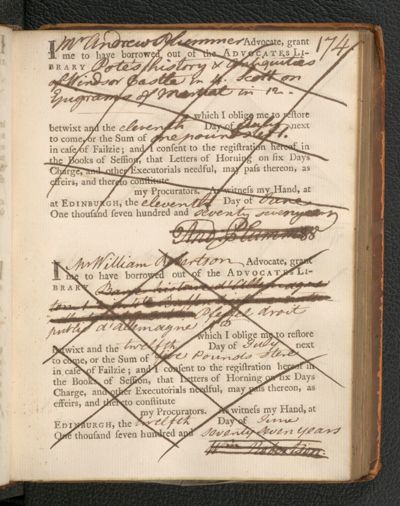 174
I Mr Andrew Plummer Advocate, grant
me to have borrowed out of the ADVOCATES LI-
BRARY Pote's history & Antiquities
of Windsor Castle in 4. Scott on
Epigrams of Martial in 12.
which I oblige me to restore
betwixt and the eleventh Day of July next
to come, or the Sum of one pound ster.
in case of Failzie; and I consent to the registration hereof in
the Books of Session, that Letters of Horning on six Days
Charge, and other Executorials needful, may pass thereon, as
effeirs, and thereto constitute
my Procurators. As witness my Hand, at
at EDINBURGH, the eleventh Day of June
One thousand seven hundred and seventy seven years
And: Plummer
I Mr William Robertson, Advocate, grant
me to have borrowed out of the ADVOCATES LI-
BRARY Barre histoire d'Allemagne
Pfeffel droit
public d'Allemagne
which I oblige me to restore
betwixt and the twelfth Day of July next
to come, or the Sum of Pounds Ster.
in case of Failzie; and I consent to the registration hereof in
the Books of Session, that Letters of Horning on six Days
Charge, and other Executorials needful, may pass thereon, as
effeirs, and thereto constitute
my Procurators. As witness my Hand, at
EDINBURGH, the twelfth Day of June
One thousand seven hundred and seventy seven years
Wm Robertson